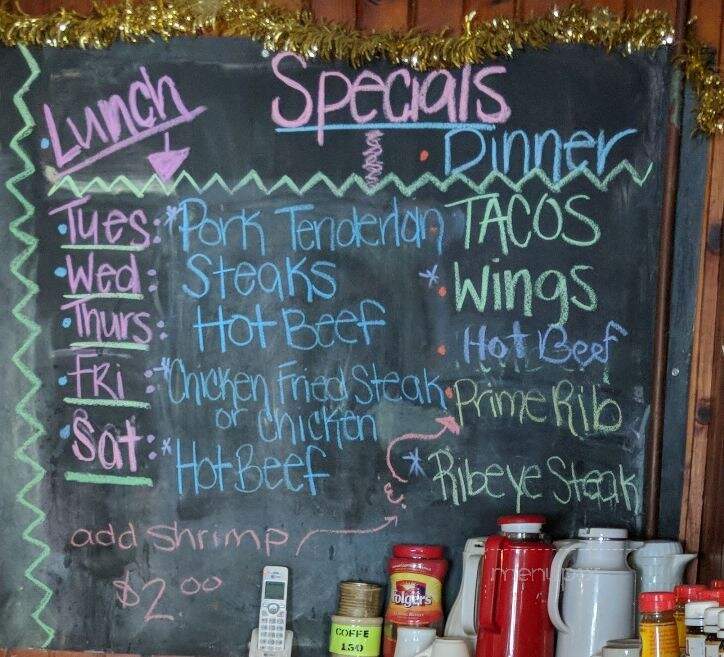 Specials
Lunch
Dinner
Tues: *Pork Tenderlon TACOS
Wed: Steaks *Wings
Thurs: Hot Beef Hot Beef
FRi: *Chicken Fried Steak Prime Rib
or chicken
Sat: *Hot Beef *Ribeye Steak
&
add shrimp
$2.00
Folgers
COFFE
1.50
menupix